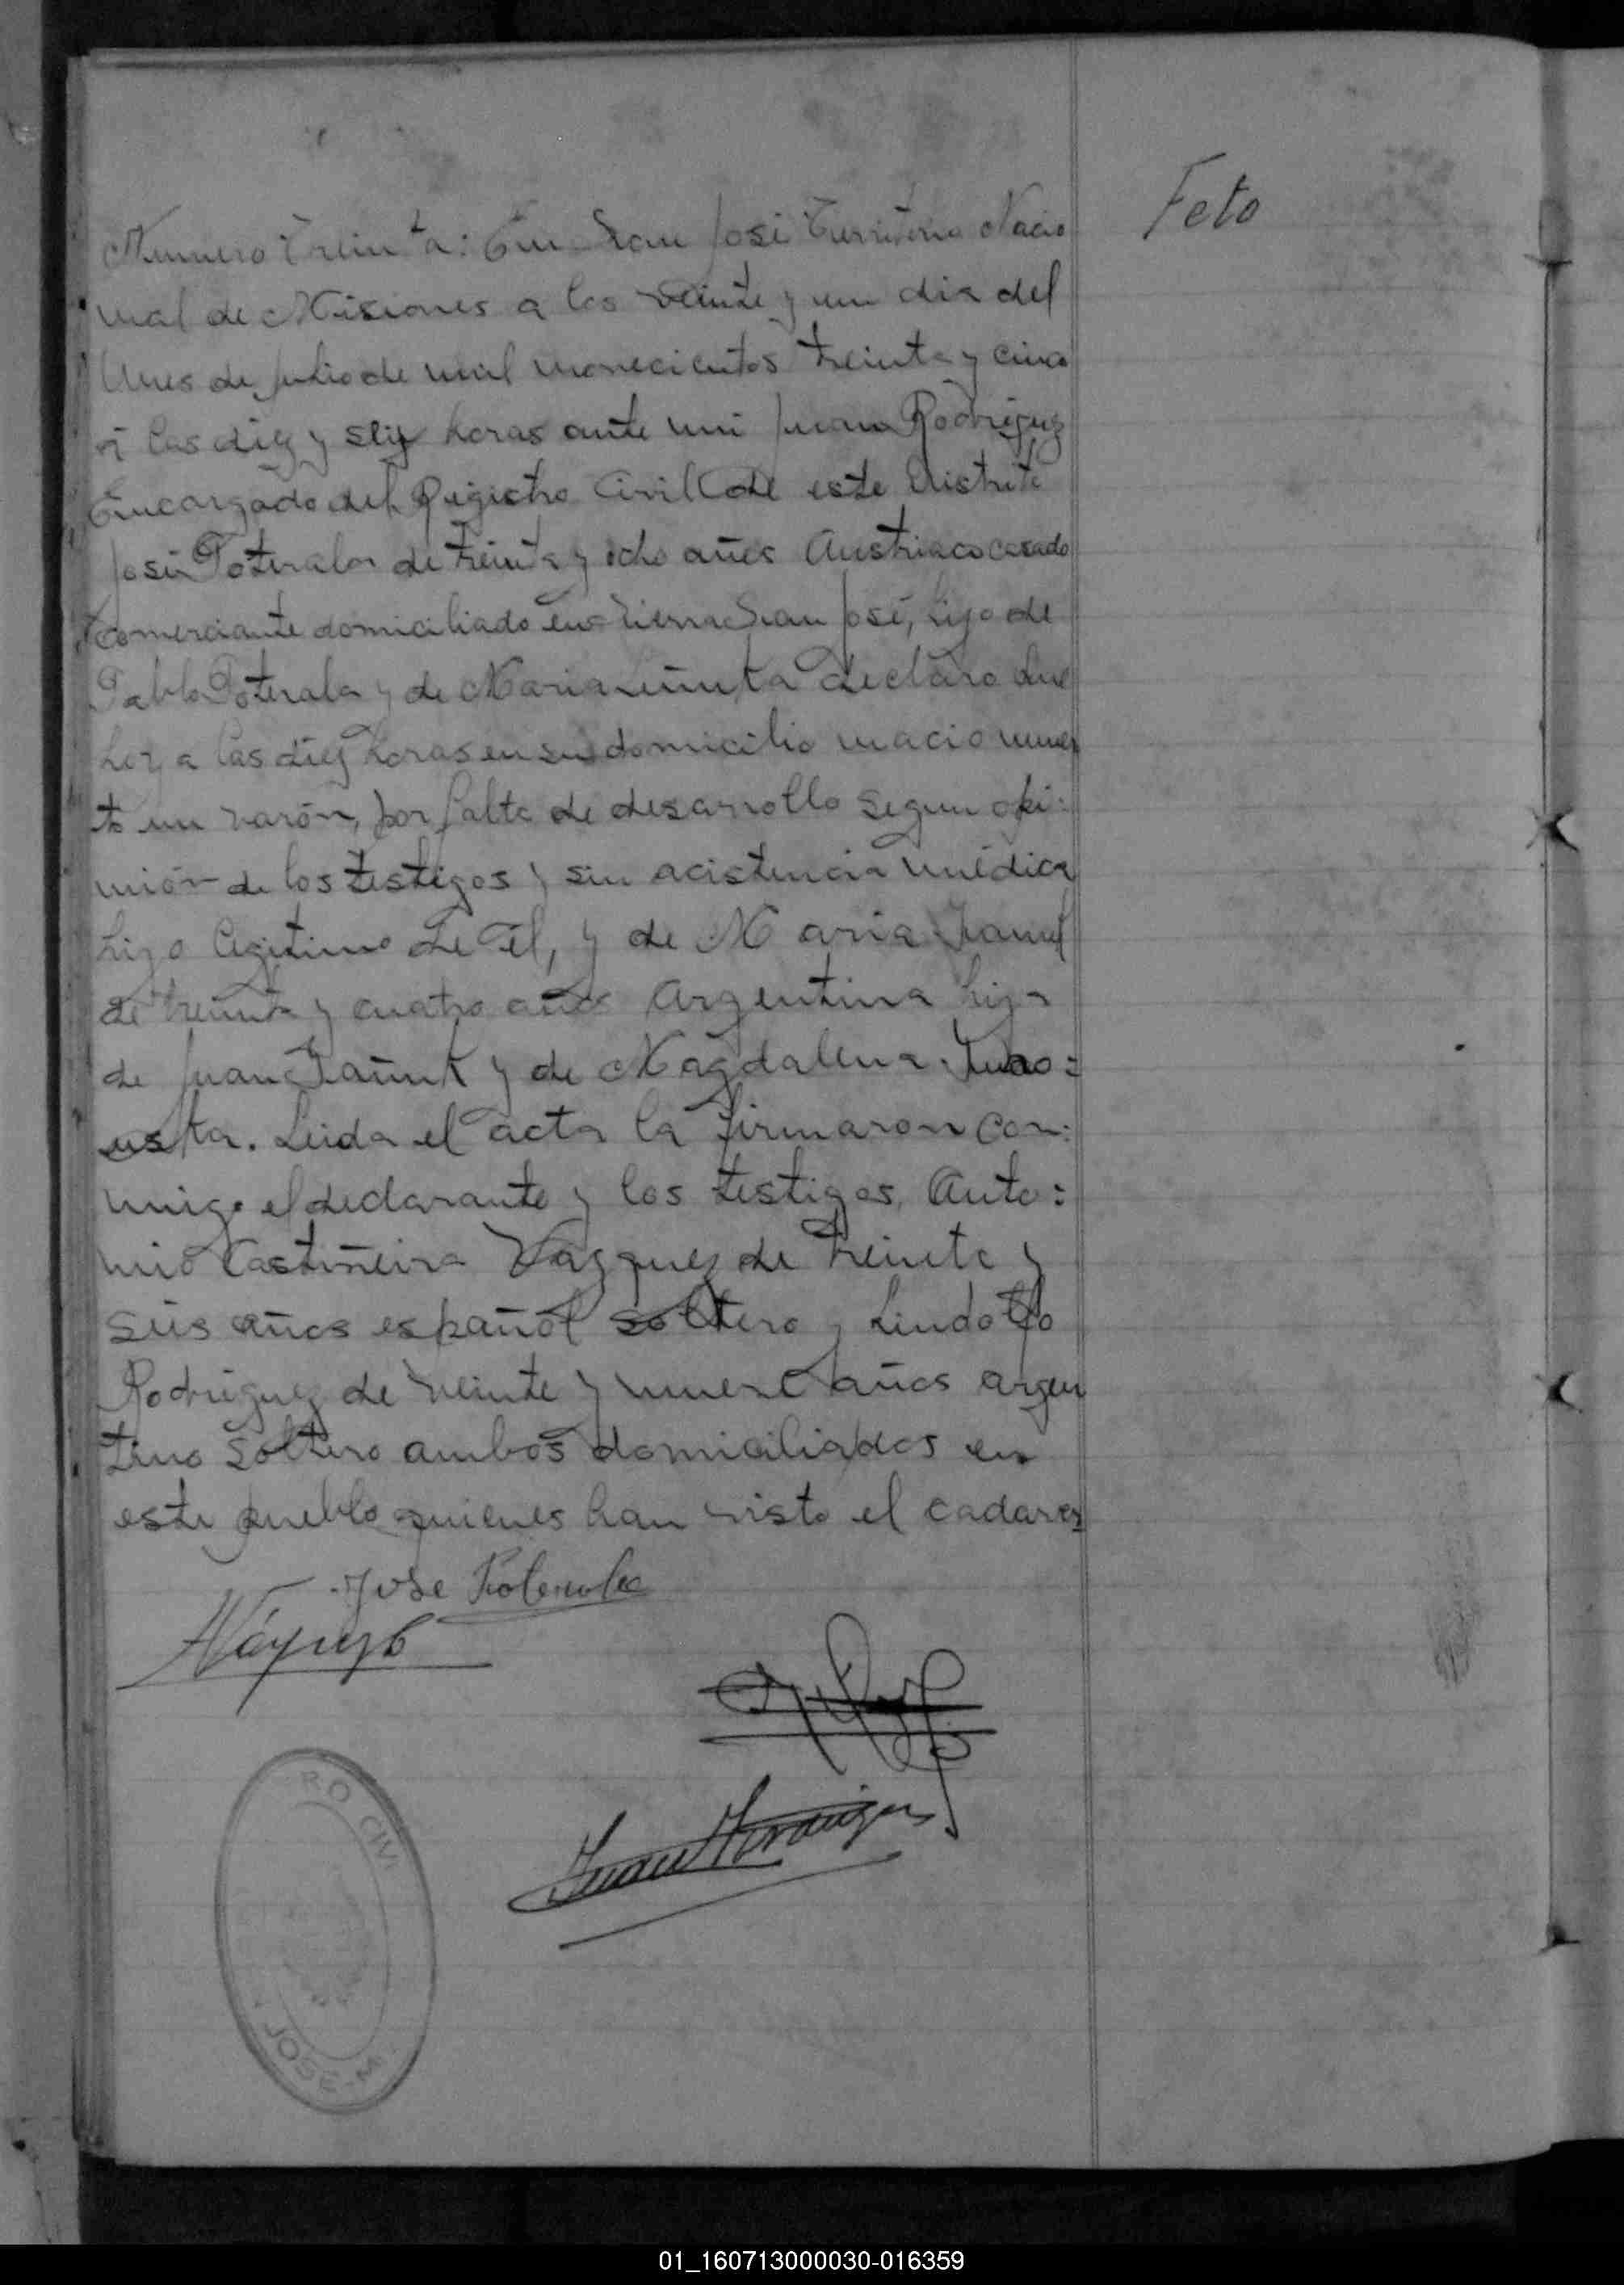 Feto
Numero Treinta: En San José Territorio Nacio
nal de Misiones a los veinte y un dia del
Mes de Julio de mil novecientos treinta y cinco
a las diez y seis horas ante mi Juan Rodriguez
Encargado del Registro Civil de este Distrito
José Poterala de treinta y ocho años Austriaco casado
comerciante domiciliado en San José, hijo de
Pablo Poterala y de Maria declaro que
hoy a las diez horas en su domicilio nacio muer
to un varón, por falta de desarrollo segun opi:
nión de los testigos y sin acistencia médica
hijo legitimo de El, y de Maria
de treinta y cuatro años Argentina hija
de Juan y de Magdalena
Leida el acta la firmaron con:
migo el declarante y los testigos, Anto:
nio Castiñeira Vazquez de treinta y
seis años español soltero y Lindolfo
Rodriguez de veinte y nueve años argen
tino soltero ambos domiciliados en
este pueblo quienes han visto el cadaver
Jose Poterala
RO CIVI
JOSE-M
01_160713000030-016359